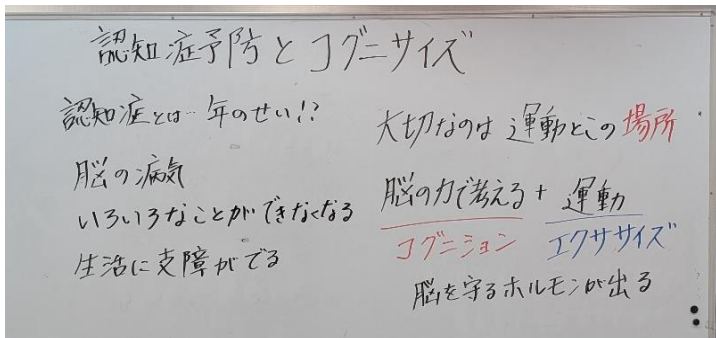 認知症予防とコグニサイズ
認知症とは…年のせい!?
脳の病気
いろいろなことができなくなる
生活に支障がでる
大切なのは運動とこの場所
脳の力で考える+運動
コグニション エクササイズ
脳を守るホルモンが出る